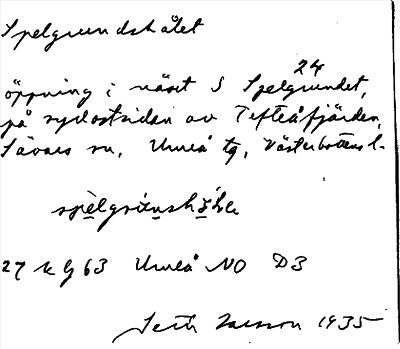 Spelgrundshålet
24
öppning i näset S Spelgrundet,
på sydostsidan av Tefteåfjärden,
Sävars sn, Umeå tg, Västerbottens l.
27 63 Umeå NO D3
1935